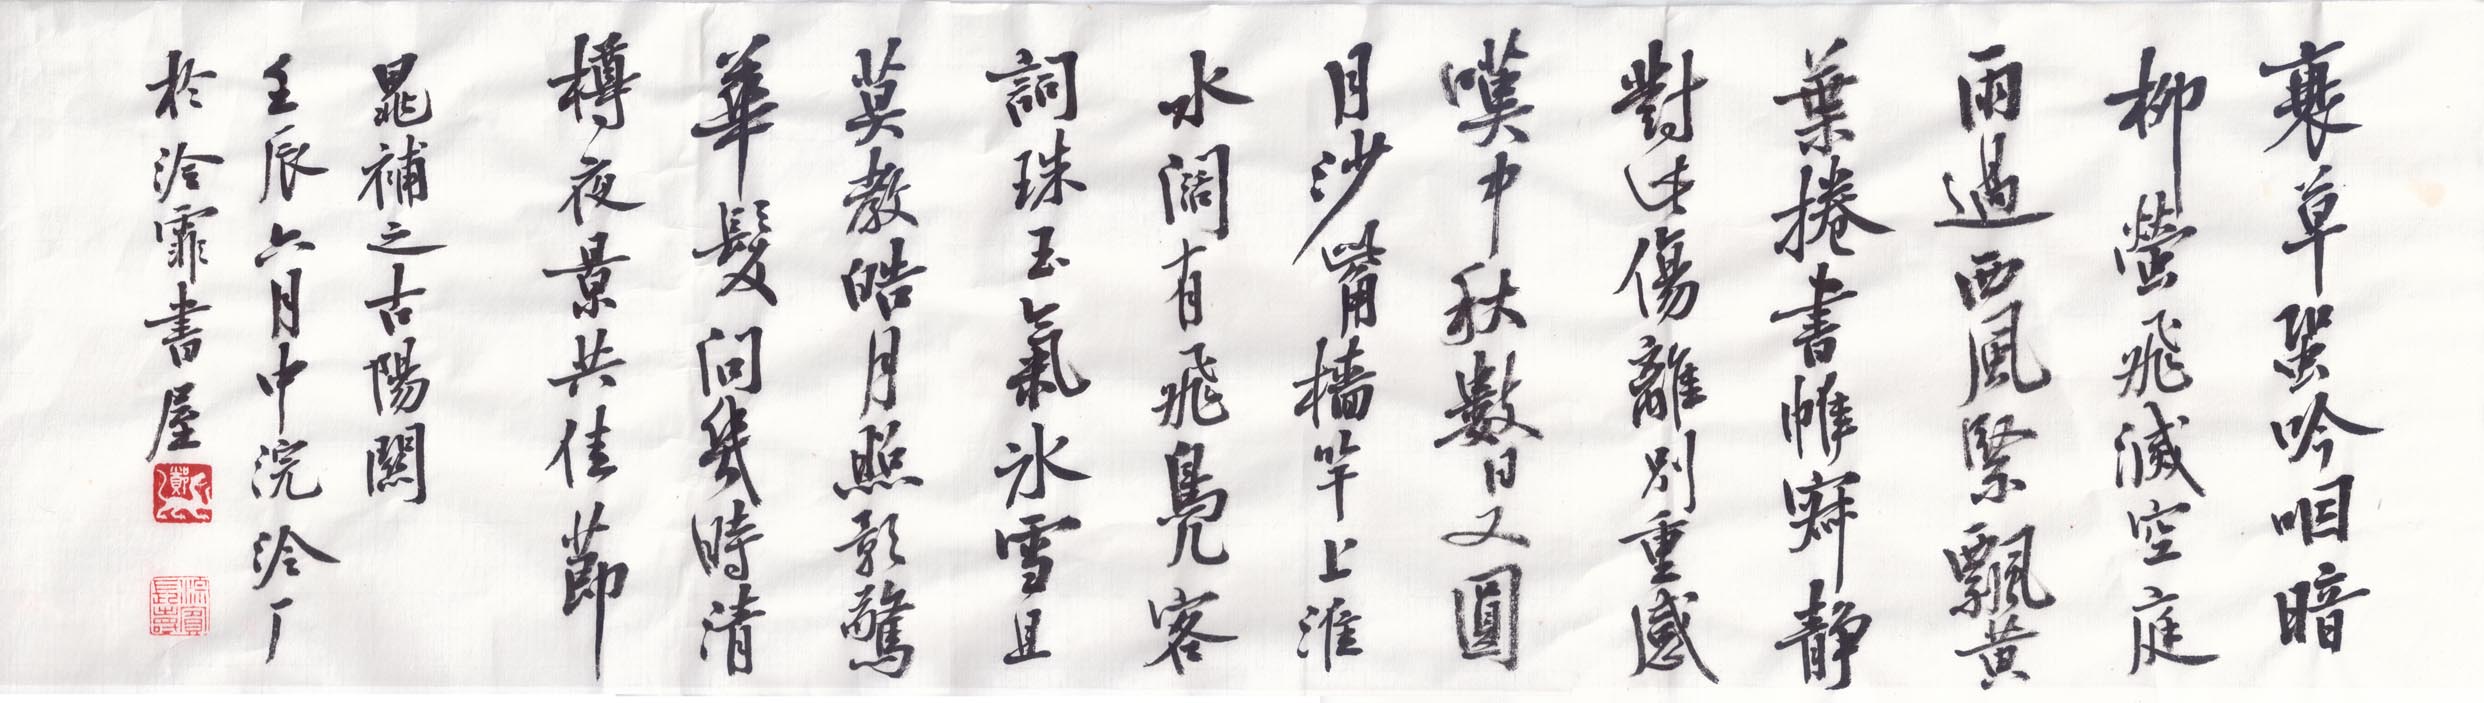 衰草蛩吟咽暗
柳螢飛滅空庭
雨過西風緊飄黄
葉捲書帷寂静
對此傷離别重感
嘆中秋數日又圓
月沙觜檣竿上淮
水闊有飛鳧客
詞珠玉氣冰雪且
莫教皓月照影驚
華髮問幾時清
樽夜景共佳節
晁補之古陽關
壬辰六月中浣泠厂
於泠霏書屋
鄭